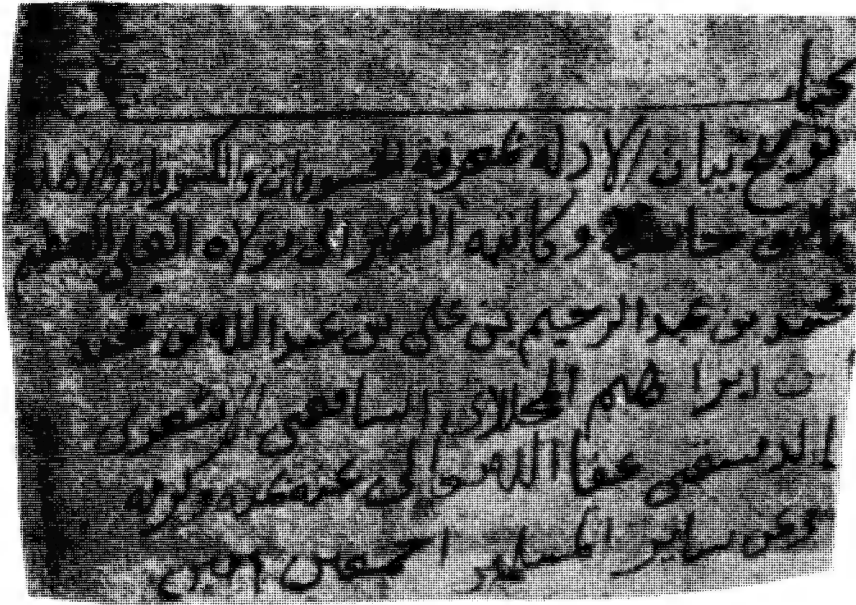 كتاب
توضيح بيان الادله لمعرفة الخسوفات والكسوفات والاهله
تاليف وكاتبه الفقير الى مولاه العلي العظيم
محمد بن عبد الرحيم بن علي بن عبد الله بن محمد
بن ابراهيم الشافعي الاشعري
الدمشقي عفا الله تعالى عنه بمنه وكرمه
وعن ساير المسلمين اجمعين امين